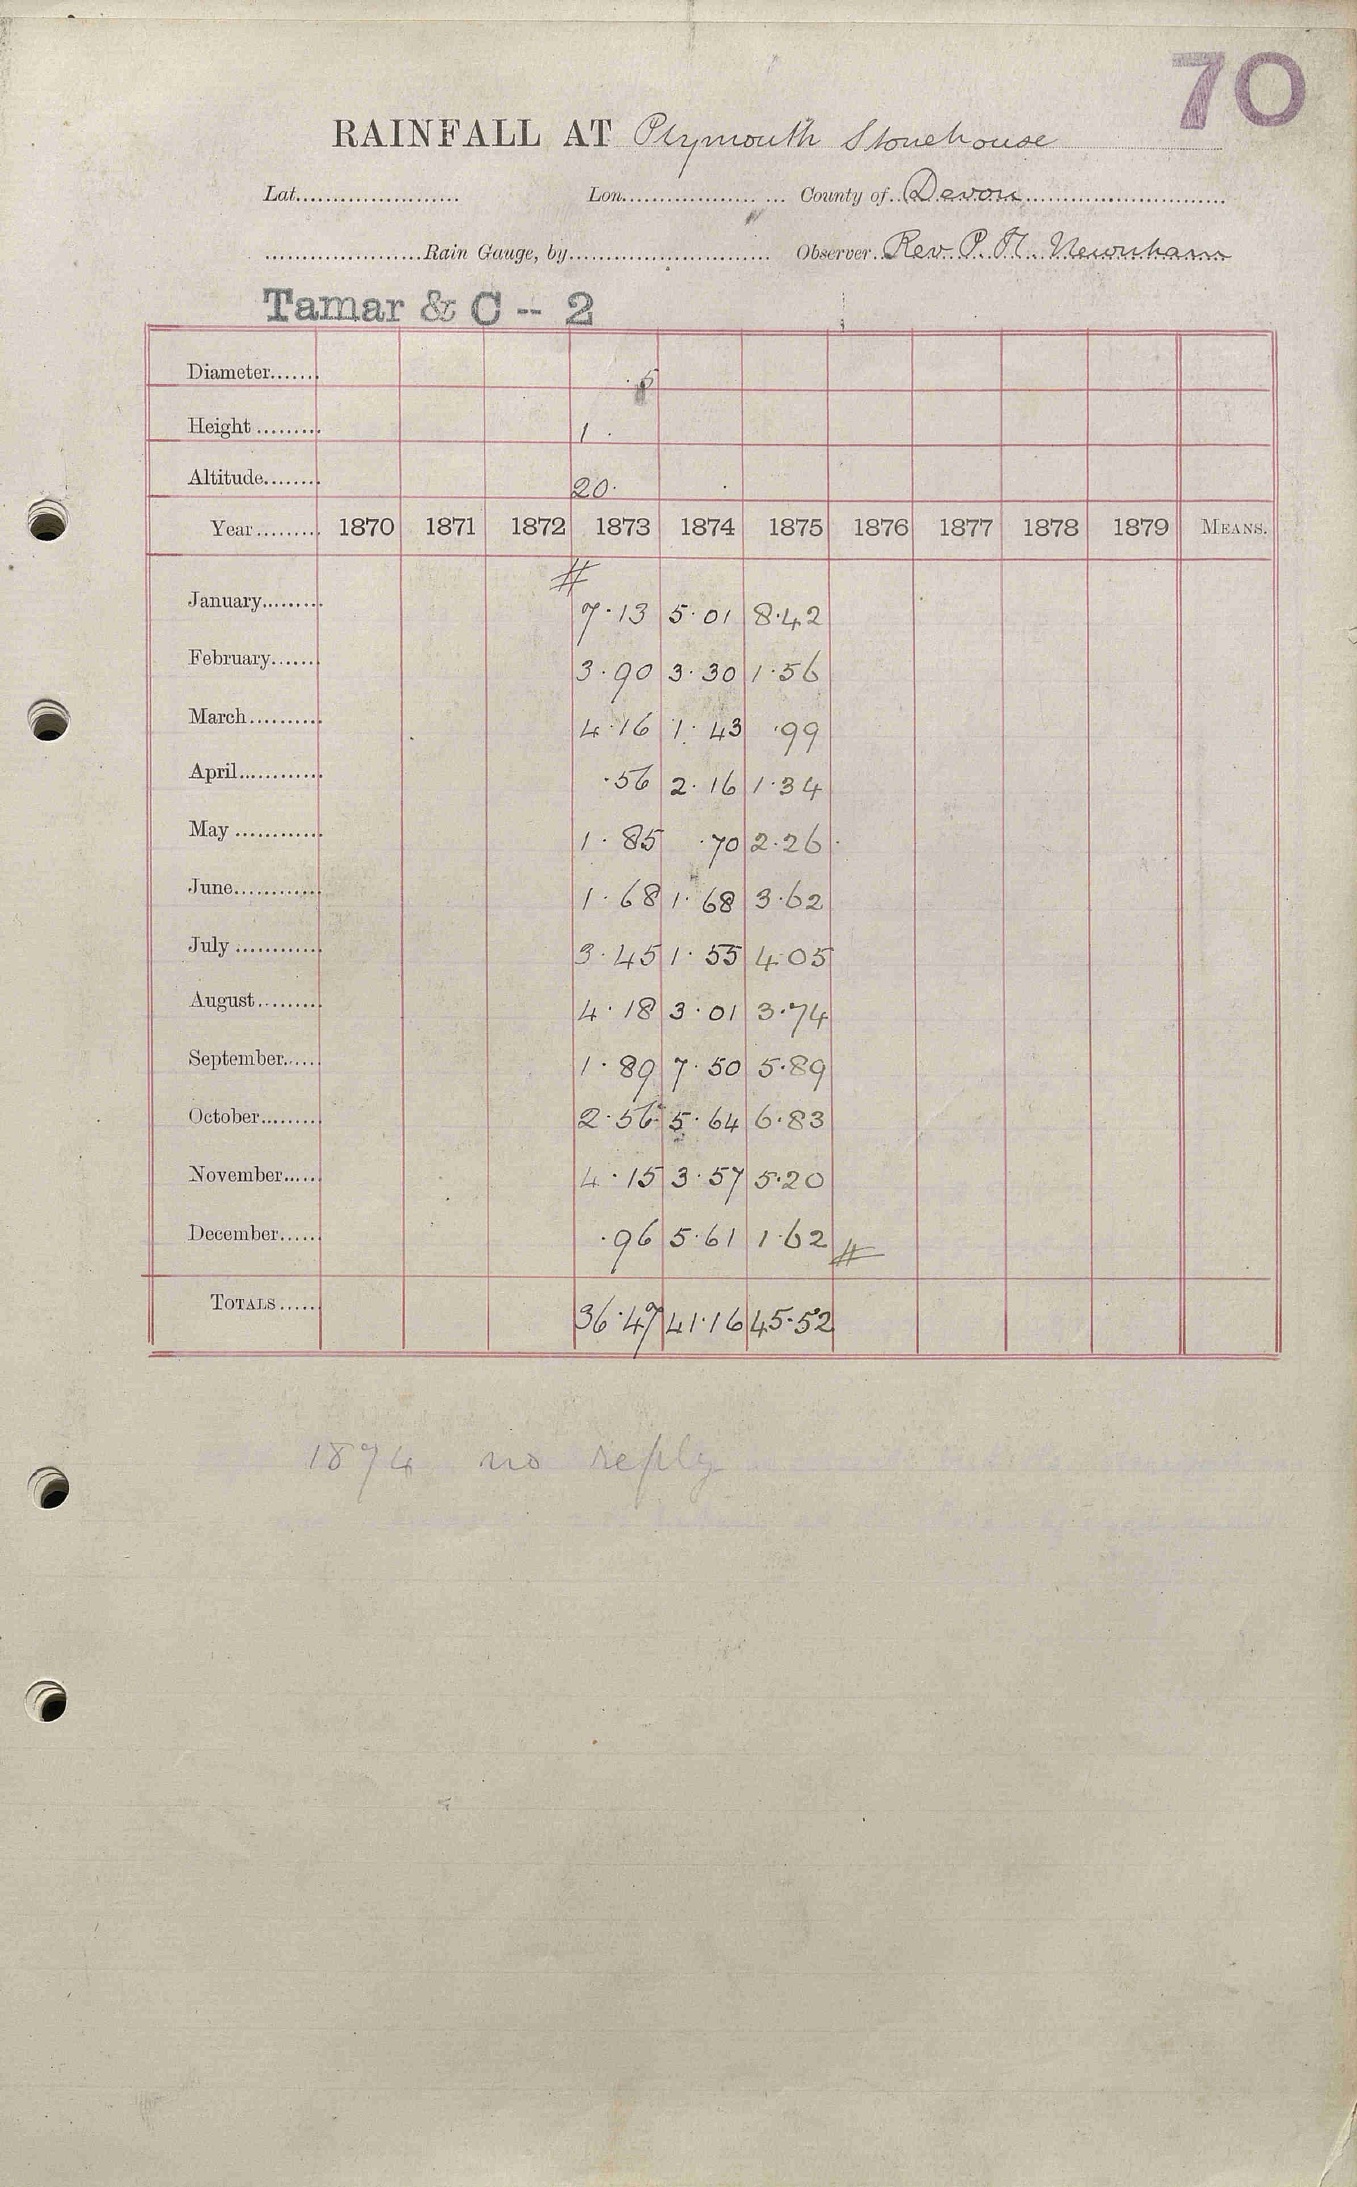 70
RAINFALL AT Plymouth Stonehouse
Lat...................... Lon.................. ... County of..Devon...........................
......................Rain Gauge, by........................... Observer..Rev. P. H. Newnham
Tamar & C -- 2
Diameter....... 5
Height......... 1.
Altitude........ 20.
Year......... 1870 1871 1872 1873 1874 1875 1876 1877 1878 1879 MEANS.
#
January......... 7.13 5.01 8.42
February....... 3.90 3.30 1.56
March.......... 4.16 1.43 .99
April............ .56 2.16 1.34
May............ 1.85 .70 2.26
June............ 1.68 1.68 3.62
July............ 3.45 1.55 4.05
August......... 4.18 3.01 3.74
September...... 1.89 7.50 5.89
October......... 2.56 5.64 6.83
November...... 4.15 3.57 5.20
December...... .96 5.61 1.62 #
TOTALS...... 36.47 41.16 45.52
1874 no reply